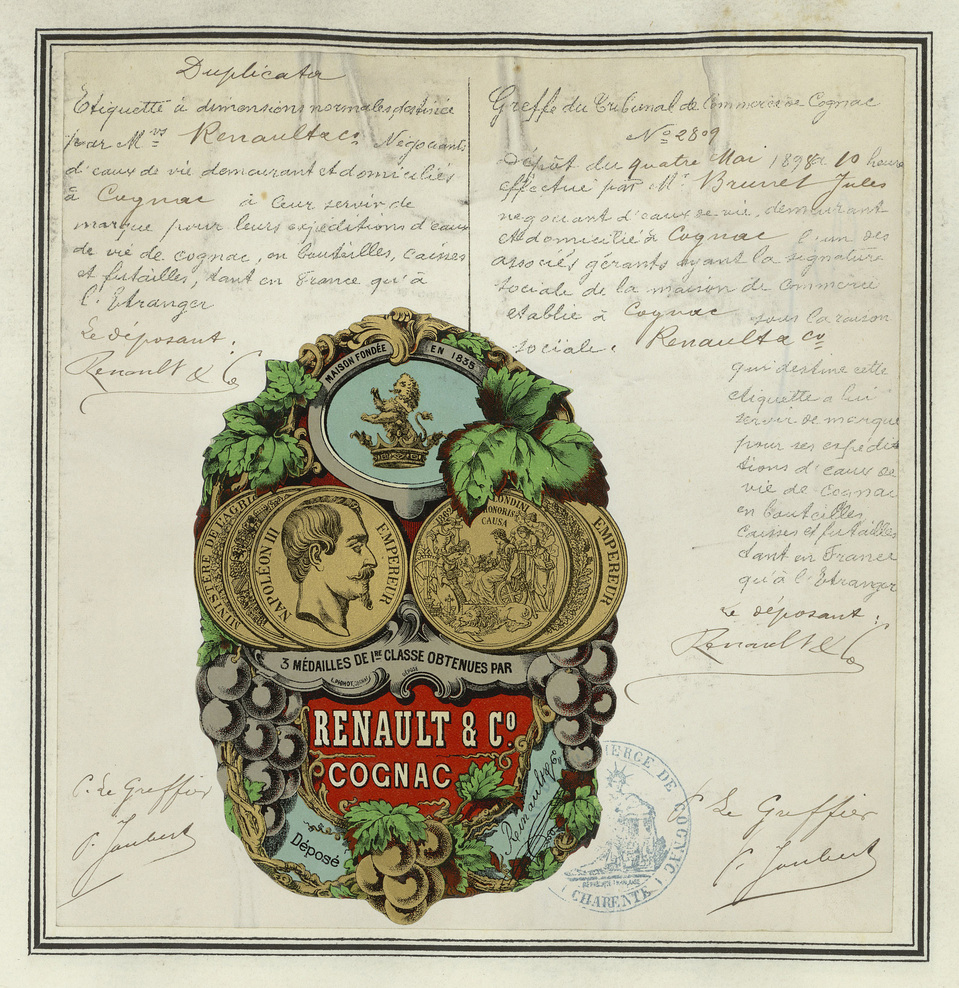 Duplicata
Etiquette à dimensions normales destinée
par Mrs Renault & Co Négociants
d'eaux de vie demeurant et domiciliés
à Cognac à leur servir de
marque pour leurs expéditions d'eaux
de vie de cognac, en bouteilles, caisses
et futailles, tant en France qu'à
l'Etranger
Le déposant :
Renault & Co
Greffe du Tribunal de Commerce de Cognac
No 2809
Dépôt du quatre Mai 1898 à 10 heures
effectué par Mr Brunet Jules
négociant d'eaux de vie, demeurant
et domicilié à Cognac l'un des
associés gérants ayant la signature
sociale de la maison de commerce
etablie à Cognac sous la raison
sociale. Renault & Co
qui destine cette
etiquette à lui
servir de marque
pour ses expédi
tions d'eaux de
vie de Cognac
en bouteilles
caisses et futailles
tant en France
qu'à l'Etranger
Le déposant :
Renault & Co
MAISON FONDÉE EN 1835
MINISTÈRE DE L'AGRI
NAPOLEON III EMPEREUR
LONDINI
HONORIS
CAUSA
EMPEREUR
3 MÉDAILLES DE 1RE CLASSE OBTENUES PAR
RENAULT & Co.
COGNAC
Déposé
Renault & Co
P. Le Greffier
P. Joubert
MERCE DE COGNAC
RÉPUBLIQUE FRANÇAISE
(CHARENTE)
P. Le Greffier
P. Joubert